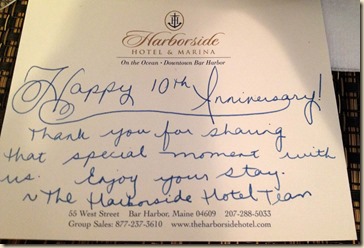 Harborside
HOTEL & MARINA
On the Ocean • Downtown Bar Harbor
Happy 10th Anniversary!
Thank you for sharing
that special moment with
us. Enjoy your stay.
~The Harborside Hotel Team
55 West Street Bar Harbor, Maine 04609 207-288-5033
Group Sales: 877-237-3610 www.theharborsidehotel.com